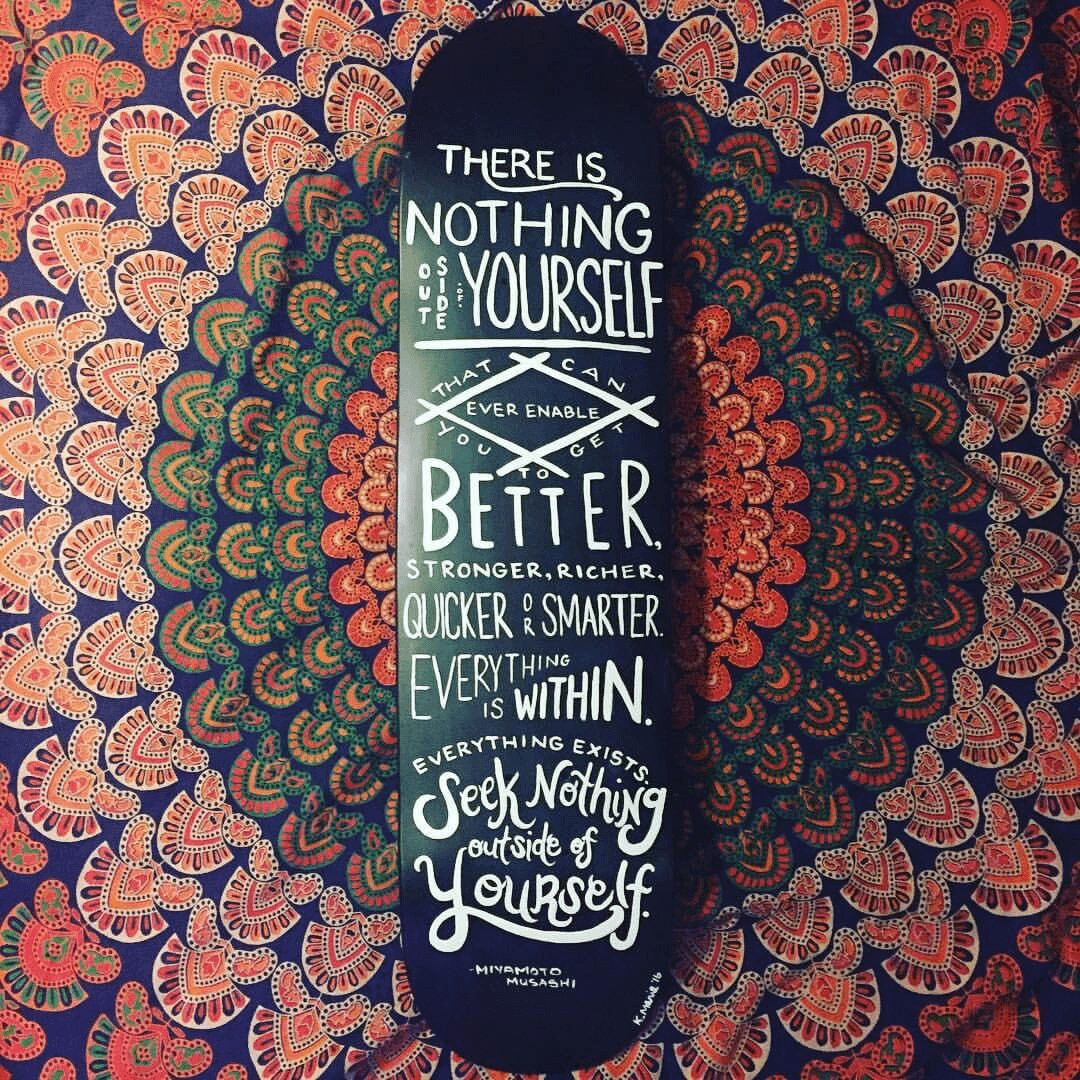 THERE IS
NOTHING
OUTSIDE OF YOURSELF
THAT CAN
EVER ENABLE
YOU GET
TO
BETTER,
STRONGER, RICHER,
QUICKER OR SMARTER.
EVERYTHING
IS WITHIN.
EVERYTHING EXISTS.
Seek Nothing
outside of
Yourself.
-MIYAMOTO
MUSASHI
K. Marie '16